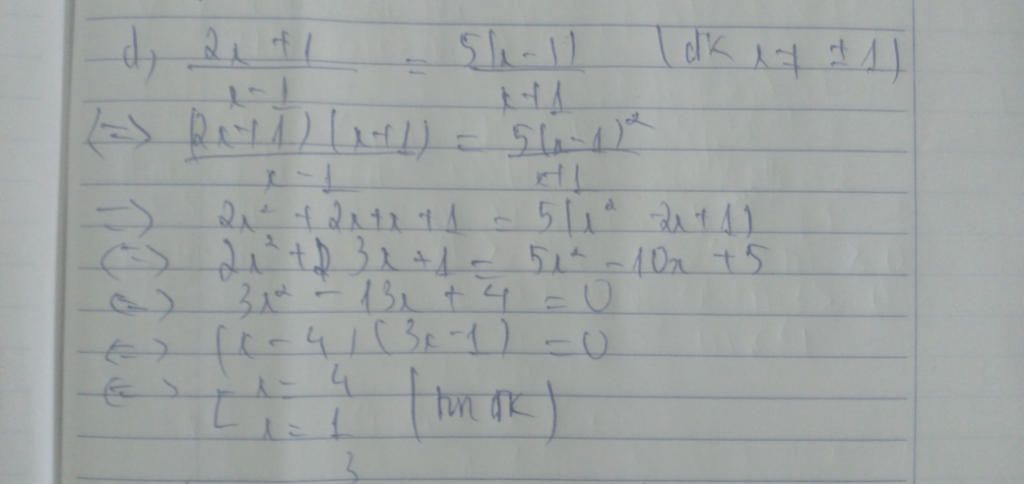 d, (2x+1)/(x-1) = 5(x-1)/(x+1) (đk x≠ ±1)
(=) (2x+1)(x+1)/(x-1) = 5(x-1)²/(x+1)
=) 2x² + 2x+x+1 = 5(x² -2x+1)
(=) 2x²+ 3x+1 = 5x² -10x +5
(=) 3x² - 13x + 4 = 0
(=) (x-4)(3x-1) = 0
(=) [ x = 4
x = 1/3 (tm đk)